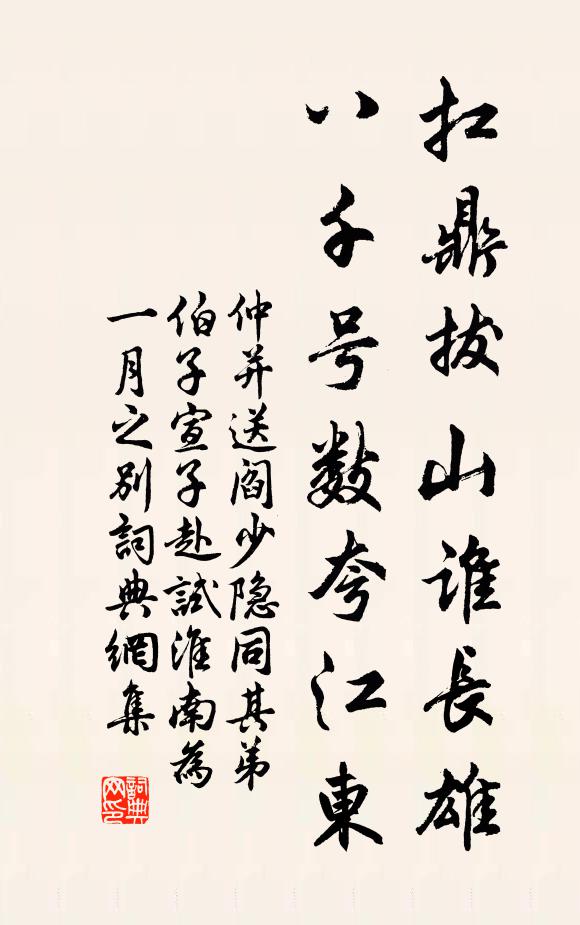 扛鼎拔山谁長雄
八千号数夸江東
仲并送阎少隐同其弟
伯子宣子赴試淮南為
一月之别詞典網集
詞典网印